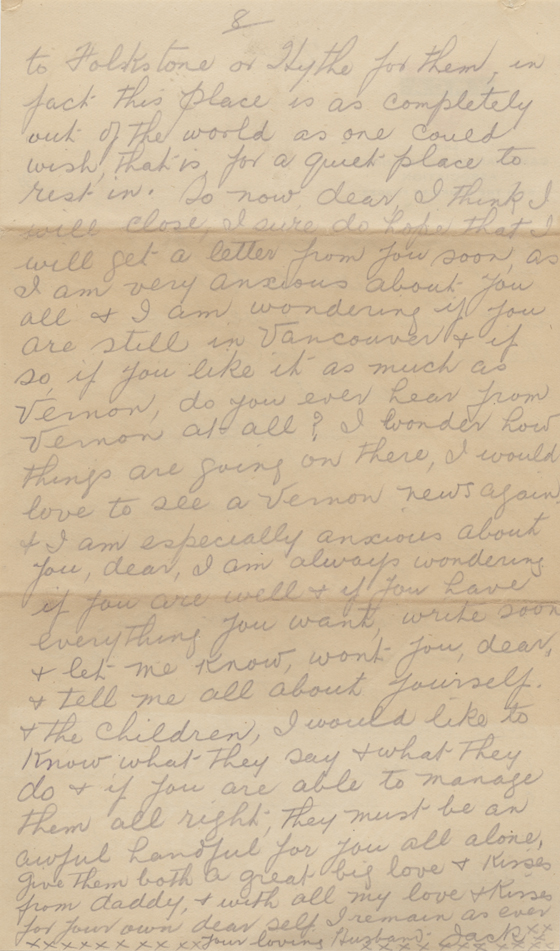 8
to Folkstone or Hythe for them, in
fact this place is as completely
out of the world as one could
wish, that is, for a quiet place to
rest in. So now, dear, I think I
will close, I sure do hope that I
will get a letter from you soon, as
I am very anxious about you
all & I am wondering if you
are still in Vancouver & if
so, if you like it as much as
Vernon, do you ever hear from
Vernon at all? I wonder how
things are going on there, I would
love to see a Vernon news again
& I am especially anxious about
you, dear, I am always wondering
if you are well & if you have
everything you want, write soon
& let me know, wont you, dear,
& tell me all about yourself.
& the children, I would like to
know what they say & what they
do & if you are able to manage
them all right, they must be an
awful handful for you all alone,
give them both a great big love & kisses
from daddy, & with all my love & kisses
for your own dear self I remain as ever
xxxxxxx xx xx your loving Husband Jack xx